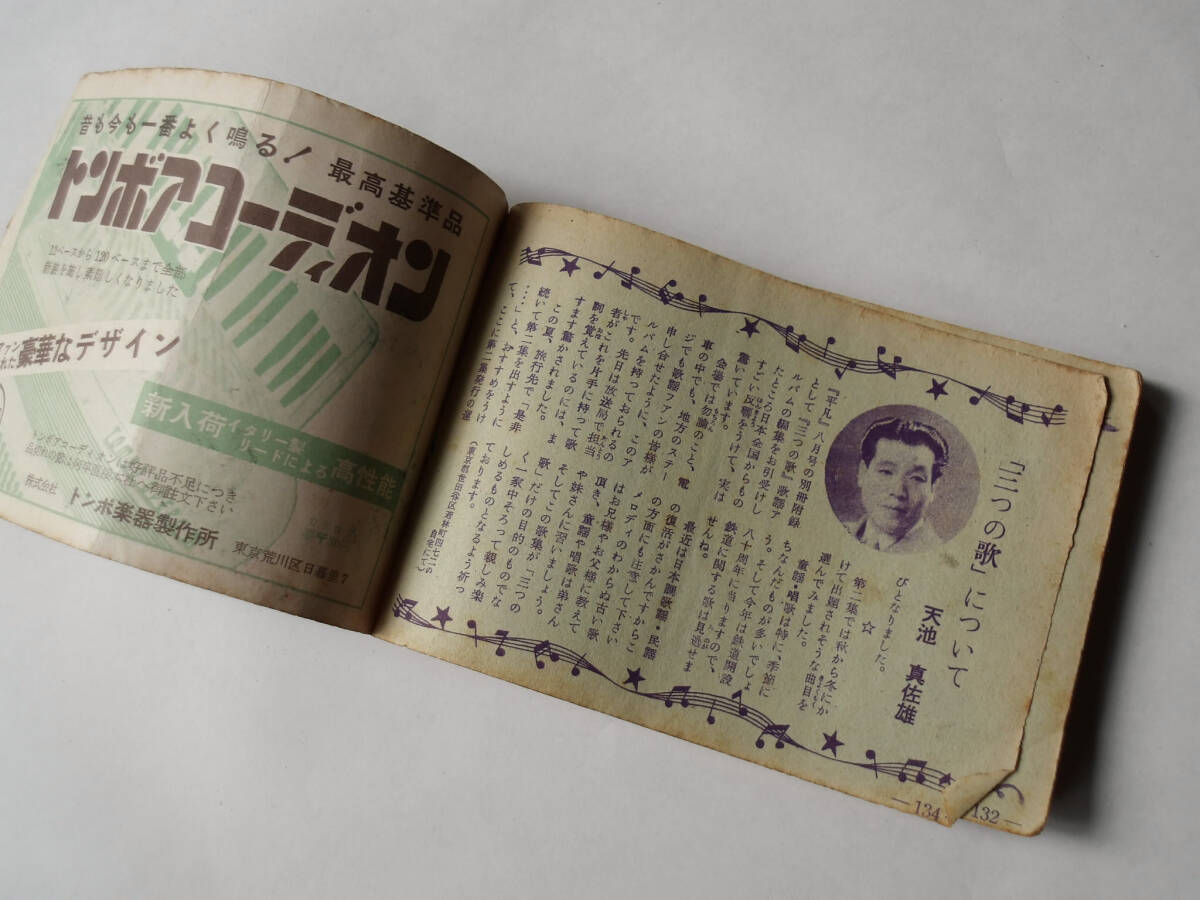 昔も今も一番よく鳴る!
最高基準品
トンボアコーディオン
12ベースから120ベースまで全部
新装を施し素晴しくなりました
豪華なデザイン
新入荷
イタリー製
リードによる
高性能
株式会社
トンボ楽器製作所
東京荒川区日暮里7
「三つの歌」について
天池 真佐雄
『平凡』八月号の別冊附録
として『三つの歌』歌謡ア
ルバムの編集をお引受けし
たところ日本全国からもの
すごい反響をうけて、実は
驚いています。
会場では勿論のこと、電
車の中でも、地方のステー
ジでも歌謡ファンの皆様が
申し合せたように、このア
ルバムを持っておられるの
です。先日は放送局で担当
者がこれを片手に持って歌
詞を覚えているのには、ま
すます驚かされました。
この夏、旅行先で「是非
続いて第二集を出すように
……」と、おすすめをうけ
て、ここに第二集発行の運
びとなりました。
☆
第二集では秋から冬にか
けて出題されそうな曲目を
選んでみました。
童謡・唱歌は特に、季節に
ちなんだものが多いでしょ
う。そして今年は鉄道開設
八十周年に当りますので、
鉄道に関する歌は見逃せま
せんね。
最近は日本調歌謡・民謡
の復活がさかんですからこ
の方面にも注意して下さい
メロディーのわからぬ古い歌
はお兄様やお父様に教えて
頂き、童謡や唱歌は弟さん
や妹さんに習いましょう。
そしてこの歌集が「三つの
歌」だけの目的のものでな
く一家中そろって親しみ楽
しめるものとなるよう祈っ
ております。
(東京都世田谷区若林町四七二の
自宅にて)
—134
132—